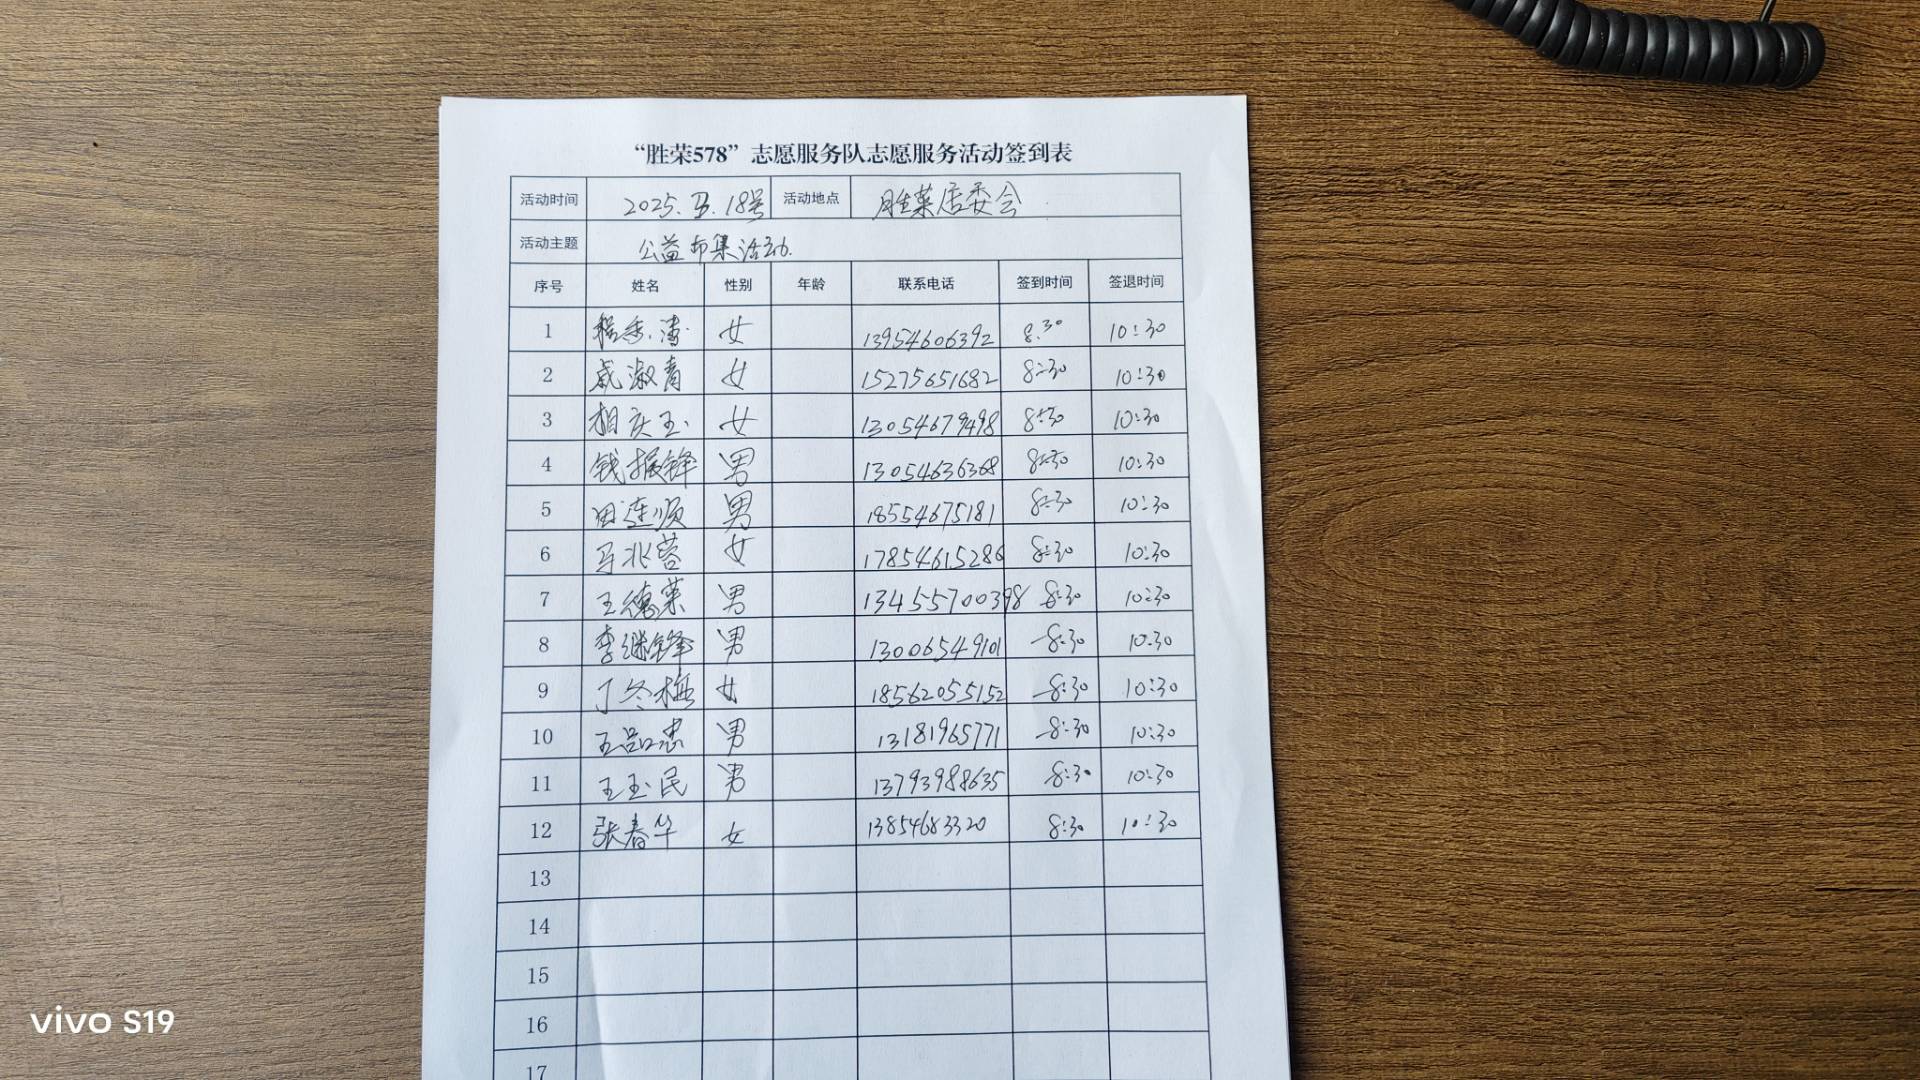 “胜荣578”志愿服务队志愿服务活动签到表
活动时间 2025. 18号 活动地点 胜荣居委会
活动主题 公益市集活动.
序号 姓名 性别 年龄 联系电话 签到时间 签退时间
1 女 13954606392 8:30 10:30
2 戚淑青 女 15275651682 8:30 10:30
3 相庆玉 女 13054679498 8:30 10:30
4 钱振锋 男 13054636368 8:30 10:30
5 田连顺 男 18554675181 8:30 10:30
6 马兆蓉 女 17854615286 8:30 10:30
7 王德荣 男 13455700398 8:30 10:30
8 李继锋 男 13006549101 8:30 10:30
9 丁冬梅 女 18562055152 8:30 10:30
10 男 13181965771 8:30 10:30
11 王玉民 男 13793988635 8:30 10:30
12 张春华 女 13854683320 8:30 10:30
13
14
15
16
17
vivo S19